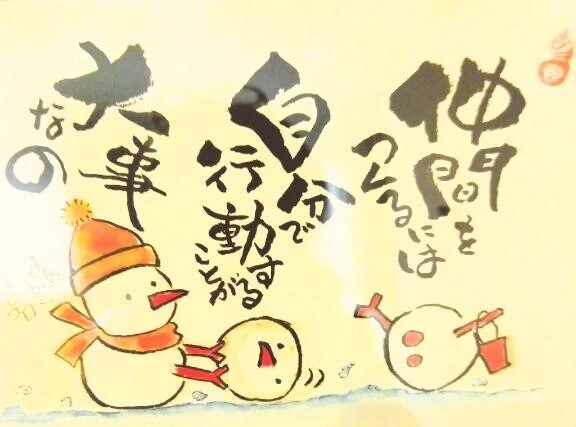 仲間を
つくるには
自分で
行動する
ことが
大事
なの